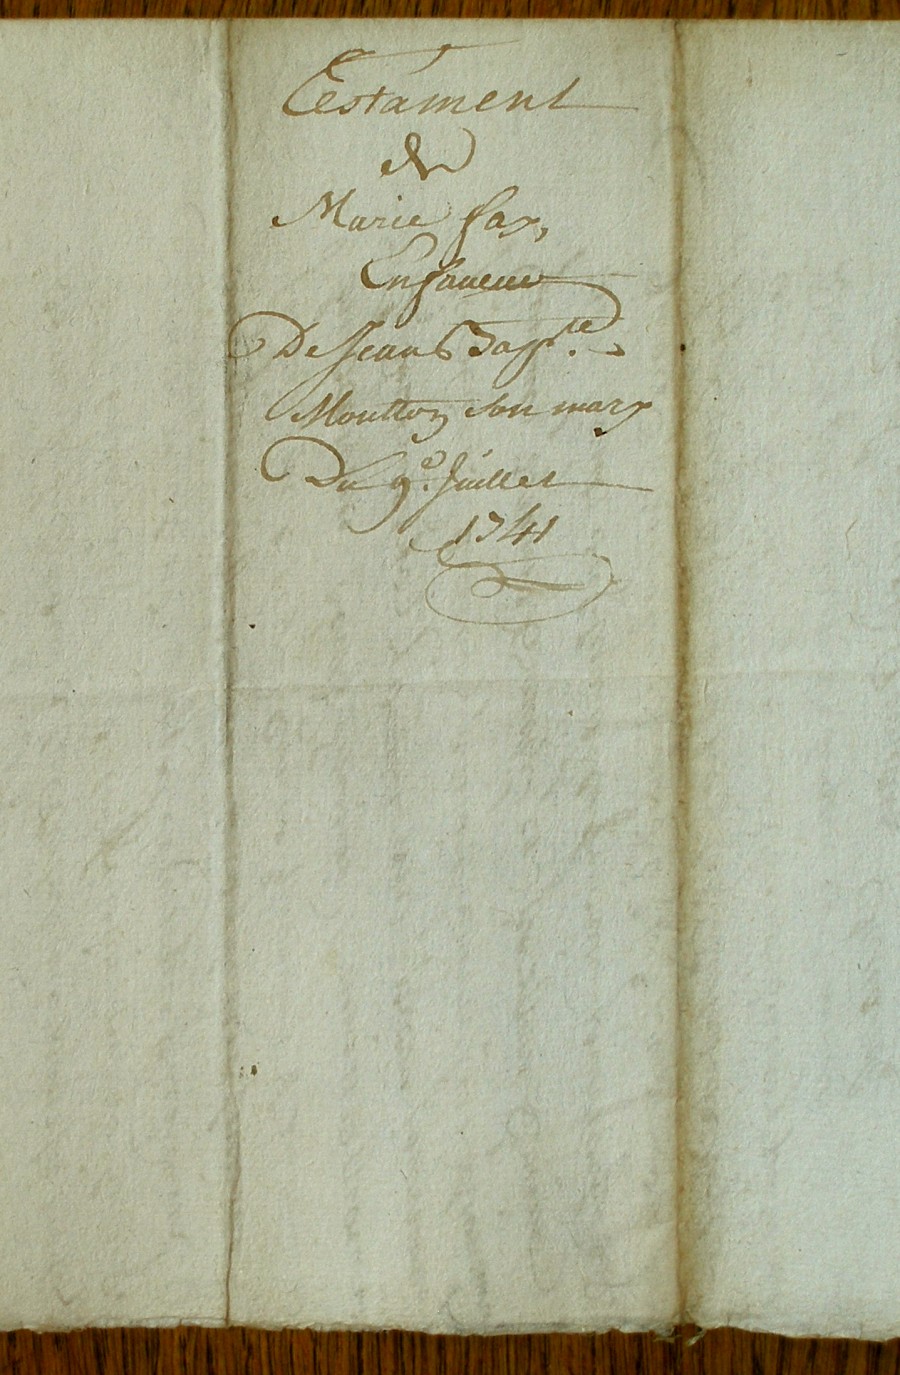 Testament
de
Marie Sax,
Enfaueur
De Jean Bapt.te
Moutton son mary
Du 9.e Juillet
1741